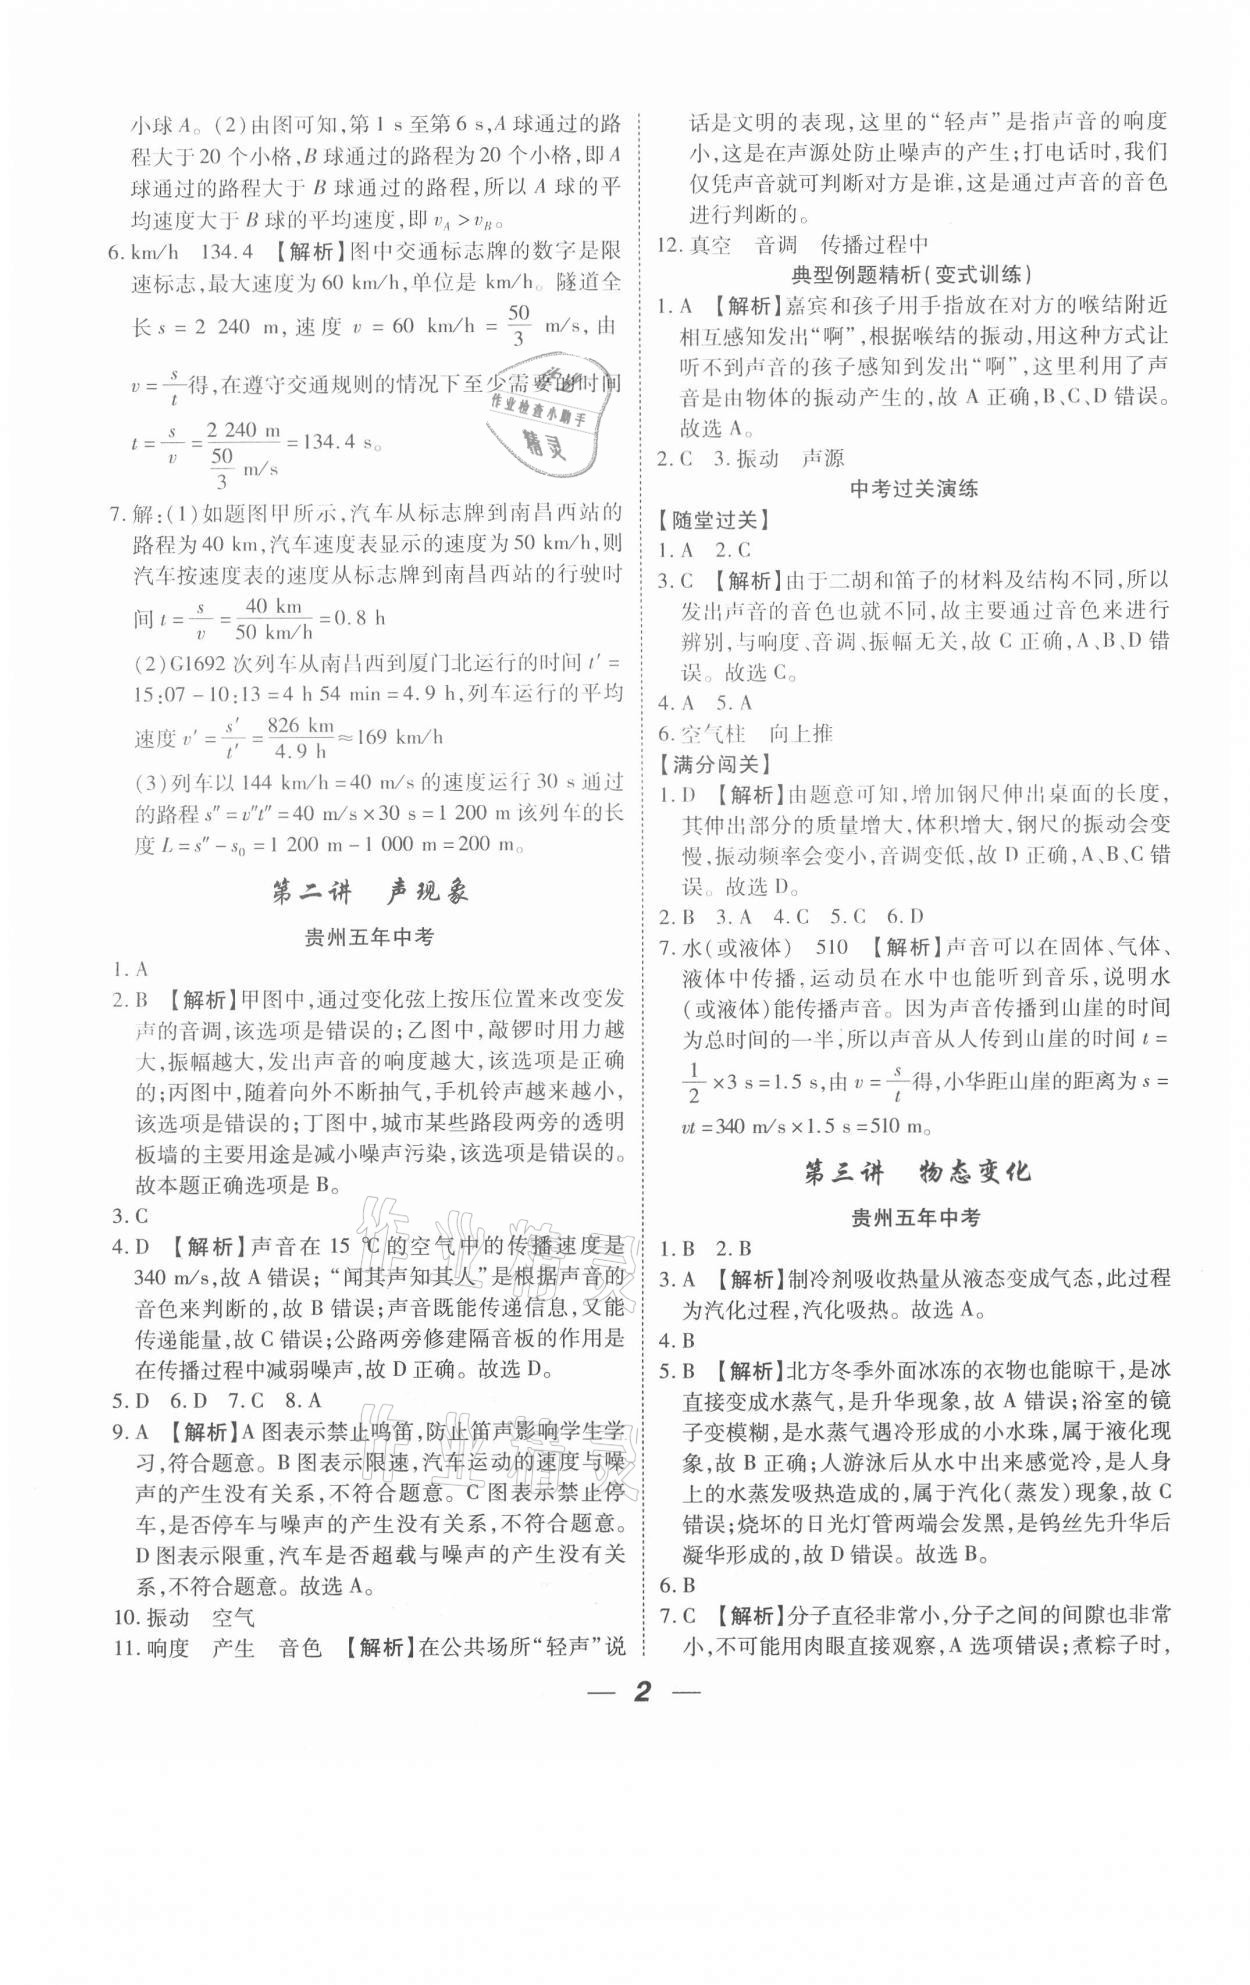 小球A。(2)由图可知,第1 s至第6 s,A球通过的路
程大于20个小格,B球通过的路程为20个小格,即A
球通过的路程大于B球通过的路程,所以A球的平
均速度大于B球的平均速度,即v_A>v_B。
6. km/h 134.4 【解析】图中交通标志牌的数字是限
速标志,最大速度为60 km/h,单位是km/h。隧道全
长s=2 240 m,速度v=60 km/h=50/3 m/s,由
v=s/t得,在遵守交通规则的情况下至少需要的时间
t=s/v=2 240 m/(50/3 m/s)=134.4 s。
7. 解:(1)如题图甲所示,汽车从标志牌到南昌西站的
路程为40 km,汽车速度表显示的速度为50 km/h,则
汽车按速度表的速度从标志牌到南昌西站的行驶时
间t=s/v=40 km/50 km/h=0.8 h
(2)G1692次列车从南昌西到厦门北运行的时间t′=
15:07-10:13=4 h 54 min=4.9 h,列车运行的平均
速度v′=s′/t′=826 km/4.9 h≈169 km/h
(3)列车以144 km/h=40 m/s的速度运行30 s通过
的路程s″=v″t″=40 m/s×30 s=1 200 m该列车的长
度L=s″-s₀=1 200 m-1 000 m=200 m。
第二讲 声现象
贵州五年中考
1. A
2. B 【解析】甲图中,通过变化弦上按压位置来改变发
声的音调,该选项是错误的;乙图中,敲锣时用力越
大,振幅越大,发出声音的响度越大,该选项是正确
的;丙图中,随着向外不断抽气,手机铃声越来越小,
该选项是错误的;丁图中,城市某些路段两旁的透明
板墙的主要用途是减小噪声污染,该选项是错误的。
故本题正确选项是B。
3. C
4. D 【解析】声音在15 ℃的空气中的传播速度是
340 m/s,故A错误;“闻其声知其人”是根据声音的
音色来判断的,故B错误;声音既能传递信息,又能
传递能量,故C错误;公路两旁修建隔音板的作用是
在传播过程中减弱噪声,故D正确。故选D。
5. D 6. D 7. C 8. A
9. A 【解析】A图表示禁止鸣笛,防止笛声影响学生学
习,符合题意。B图表示限速,汽车运动的速度与噪
声的产生没有关系,不符合题意。C图表示禁止停
车,是否停车与噪声的产生没有关系,不符合题意。
D图表示限重,汽车是否超载与噪声的产生没有关
系,不符合题意。故选A。
10. 振动 空气
11. 响度 产生 音色 【解析】在公共场所“轻声”说
话是文明的表现,这里的“轻声”是指声音的响度
小,这是在声源处防止噪声的产生;打电话时,我们
仅凭声音就可判断对方是谁,这是通过声音的音色
进行判断的。
12. 真空 音调 传播过程中
典型例题精析(变式训练)
1. A 【解析】嘉宾和孩子用手指放在对方的喉结附近
相互感知发出“啊”,根据喉结的振动,用这种方式让
听不到声音的孩子感知到发出“啊”,这里利用了声
音是由物体的振动产生的,故A正确,B、C、D错误。
故选A。
2. C 3. 振动 声源
中考过关演练
【随堂过关】
1. A 2. C
3. C 【解析】由于二胡和笛子的材料及结构不同,所以
发出声音的音色也就不同,故主要通过音色来进行
辨别,与响度、音调、振幅无关,故C正确,A、B、D错
误。故选C。
4. A 5. A
6. 空气柱 向上推
【满分闯关】
1. D 【解析】由题意可知,增加钢尺伸出桌面的长度,
其伸出部分的质量增大,体积增大,钢尺的振动会变
慢,振动频率会变小,音调变低,故D正确,A、B、C错
误。故选D。
2. B 3. A 4. C 5. C 6. D
7. 水(或液体) 510 【解析】声音可以在固体、气体、
液体中传播,运动员在水中也能听到音乐,说明水
(或液体)能传播声音。因为声音传播到山崖的时间
为总时间的一半,所以声音从人传到山崖的时间t=
1/2×3 s=1.5 s,由v=s/t得,小华距山崖的距离为s=
vt=340 m/s×1.5 s=510 m。
第三讲 物态变化
贵州五年中考
1. B 2. B
3. A 【解析】制冷剂吸收热量从液态变成气态,此过程
为汽化过程,汽化吸热。故选A。
4. B
5. B 【解析】北方冬季外面冰冻的衣物也能晾干,是冰
直接变成水蒸气,是升华现象,故A错误;浴室的镜
子变模糊,是水蒸气遇冷形成的小水珠,属于液化现
象,故B正确;人游泳后从水中出来感觉冷,是人身
上的水蒸发吸热造成的,属于汽化(蒸发)现象,故C
错误;烧坏的日光灯管两端会发黑,是钨丝先升华后
凝华形成的,故D错误。故选B。
6. B
7. C 【解析】分子直径非常小,分子之间的间隙也非常
小,不可能用肉眼直接观察,A选项错误;煮粽子时,
— 2 —
作业检查小助手
精灵
作业精灵
作业精灵